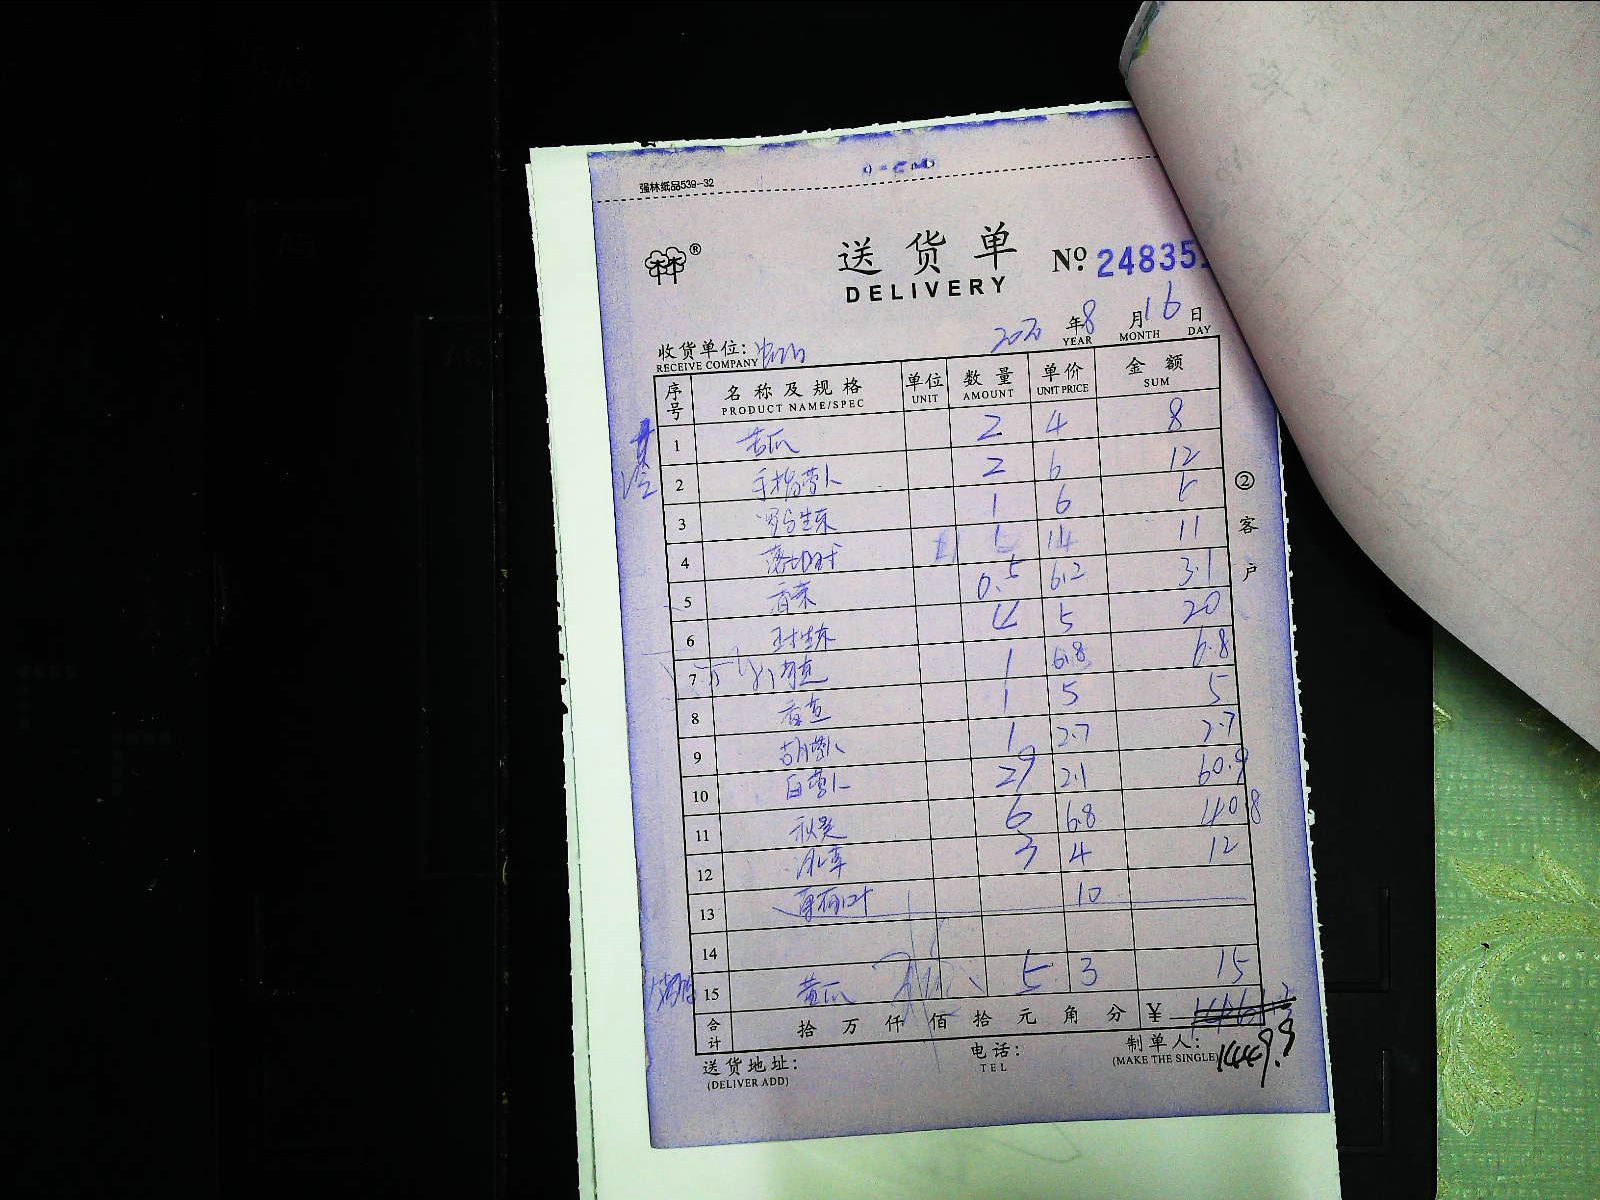 强林纸品539-32
送货单 № 24835
DELIVERY
2020 年 8 月 16 日
YEAR MONTH DAY
收货单位:
RECEIVE COMPANY
序号 名称及规格 单位 数量 单价 金额
PRODUCT NAME/SPEC UNIT AMOUNT UNIT PRICE SUM
1 2 4 8
2 手指萝卜 2 6 12
3 罗马生菜 1 6 6
4 1 14 11
5 香菜 0.5 6.2 3.1
6 4 5 20
7 1 6.8 6.8
8 香 1 5 5
9 胡萝卜 1 2.7 2.7
10 白萝卜 29 2.1 60.9
11 秋葵 6 6.8 40.8
12 冰草 3 4 12
13 10
14
15 黄瓜 5 3 15
合计 拾 万 仟 佰 拾 元 角 分 ¥
送货地址: 电话: 制单人:
(DELIVER ADD) TEL (MAKE THE SINGLE)
②客户